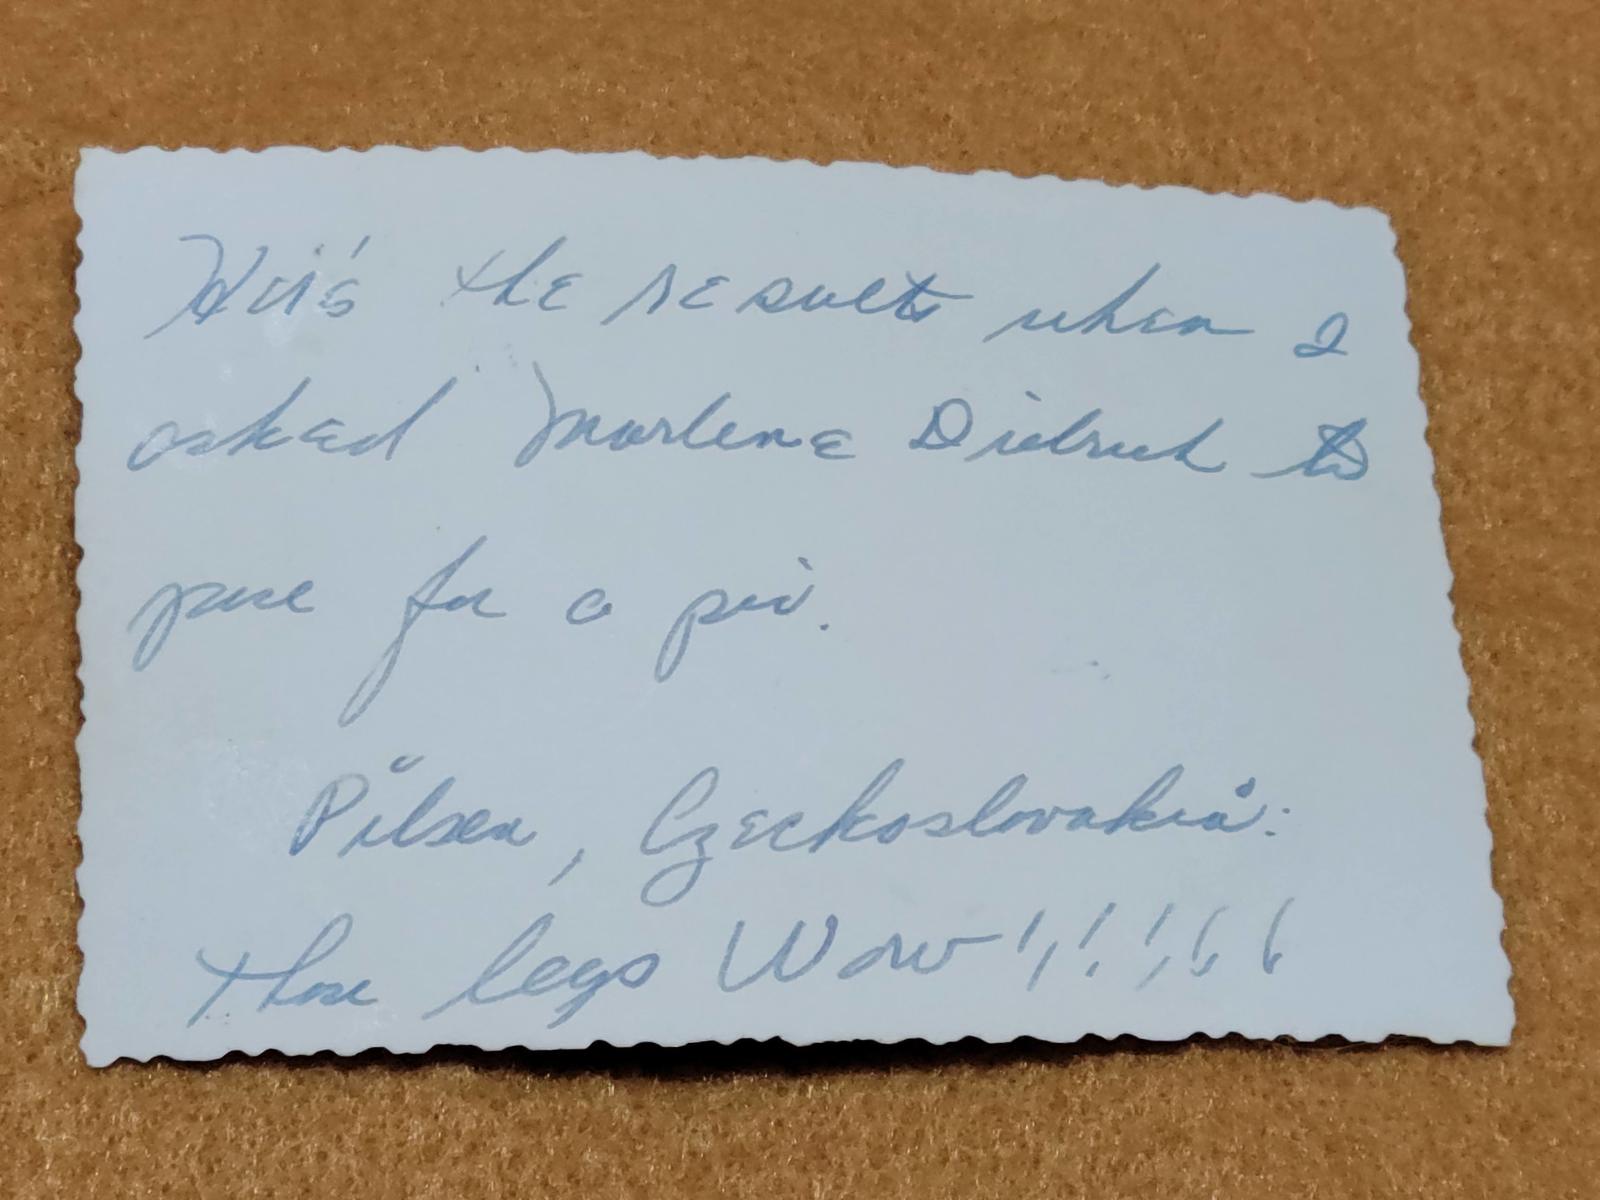 Here's the results when I
asked Marlene Dietrich to
pose for a pic.
Pilsen, Czechoslovakia:
those legs Wow!!!!!!